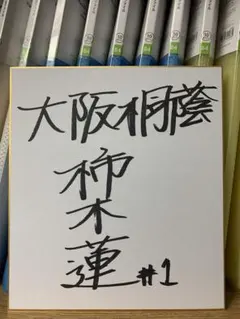 大阪桐蔭
柿木
蓮 #1